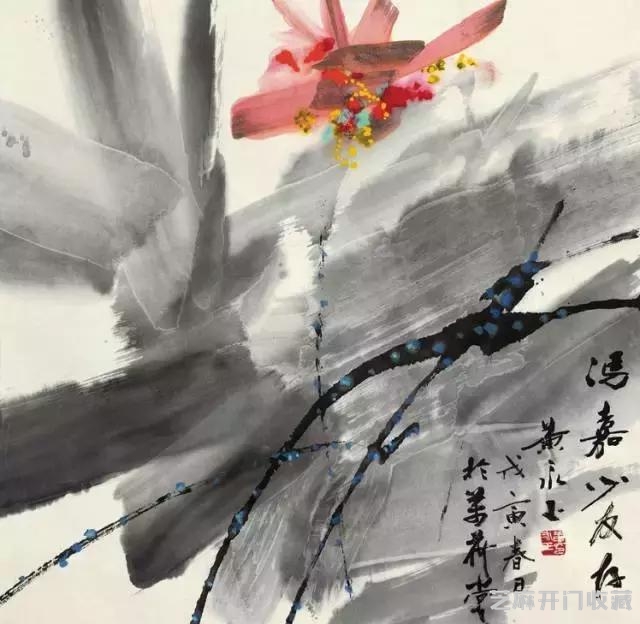 冯嘉小友存
黄永玉
戊寅春日
於万荷堂
芝麻开门收藏